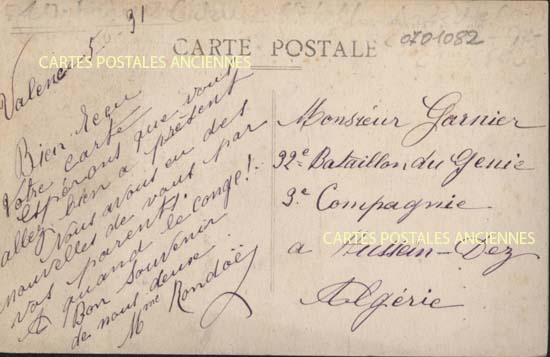 CARTE POSTALE
0701082
CARTES POSTALES ANCIENNES
Valence 5 31
Bien reçu
votre carte
espérons que vous
allez bien à présent
Nous avons eu des
nouvelles de vous par
vos parents.
A quand le congé!
Bon souvenir
de nous deux
Mme Rondoël
Monsieur Garnier
32e Bataillon du Génie
3e Compagnie
CARTES POSTALES ANCIENNES
a Hussein-Dez
Algérie